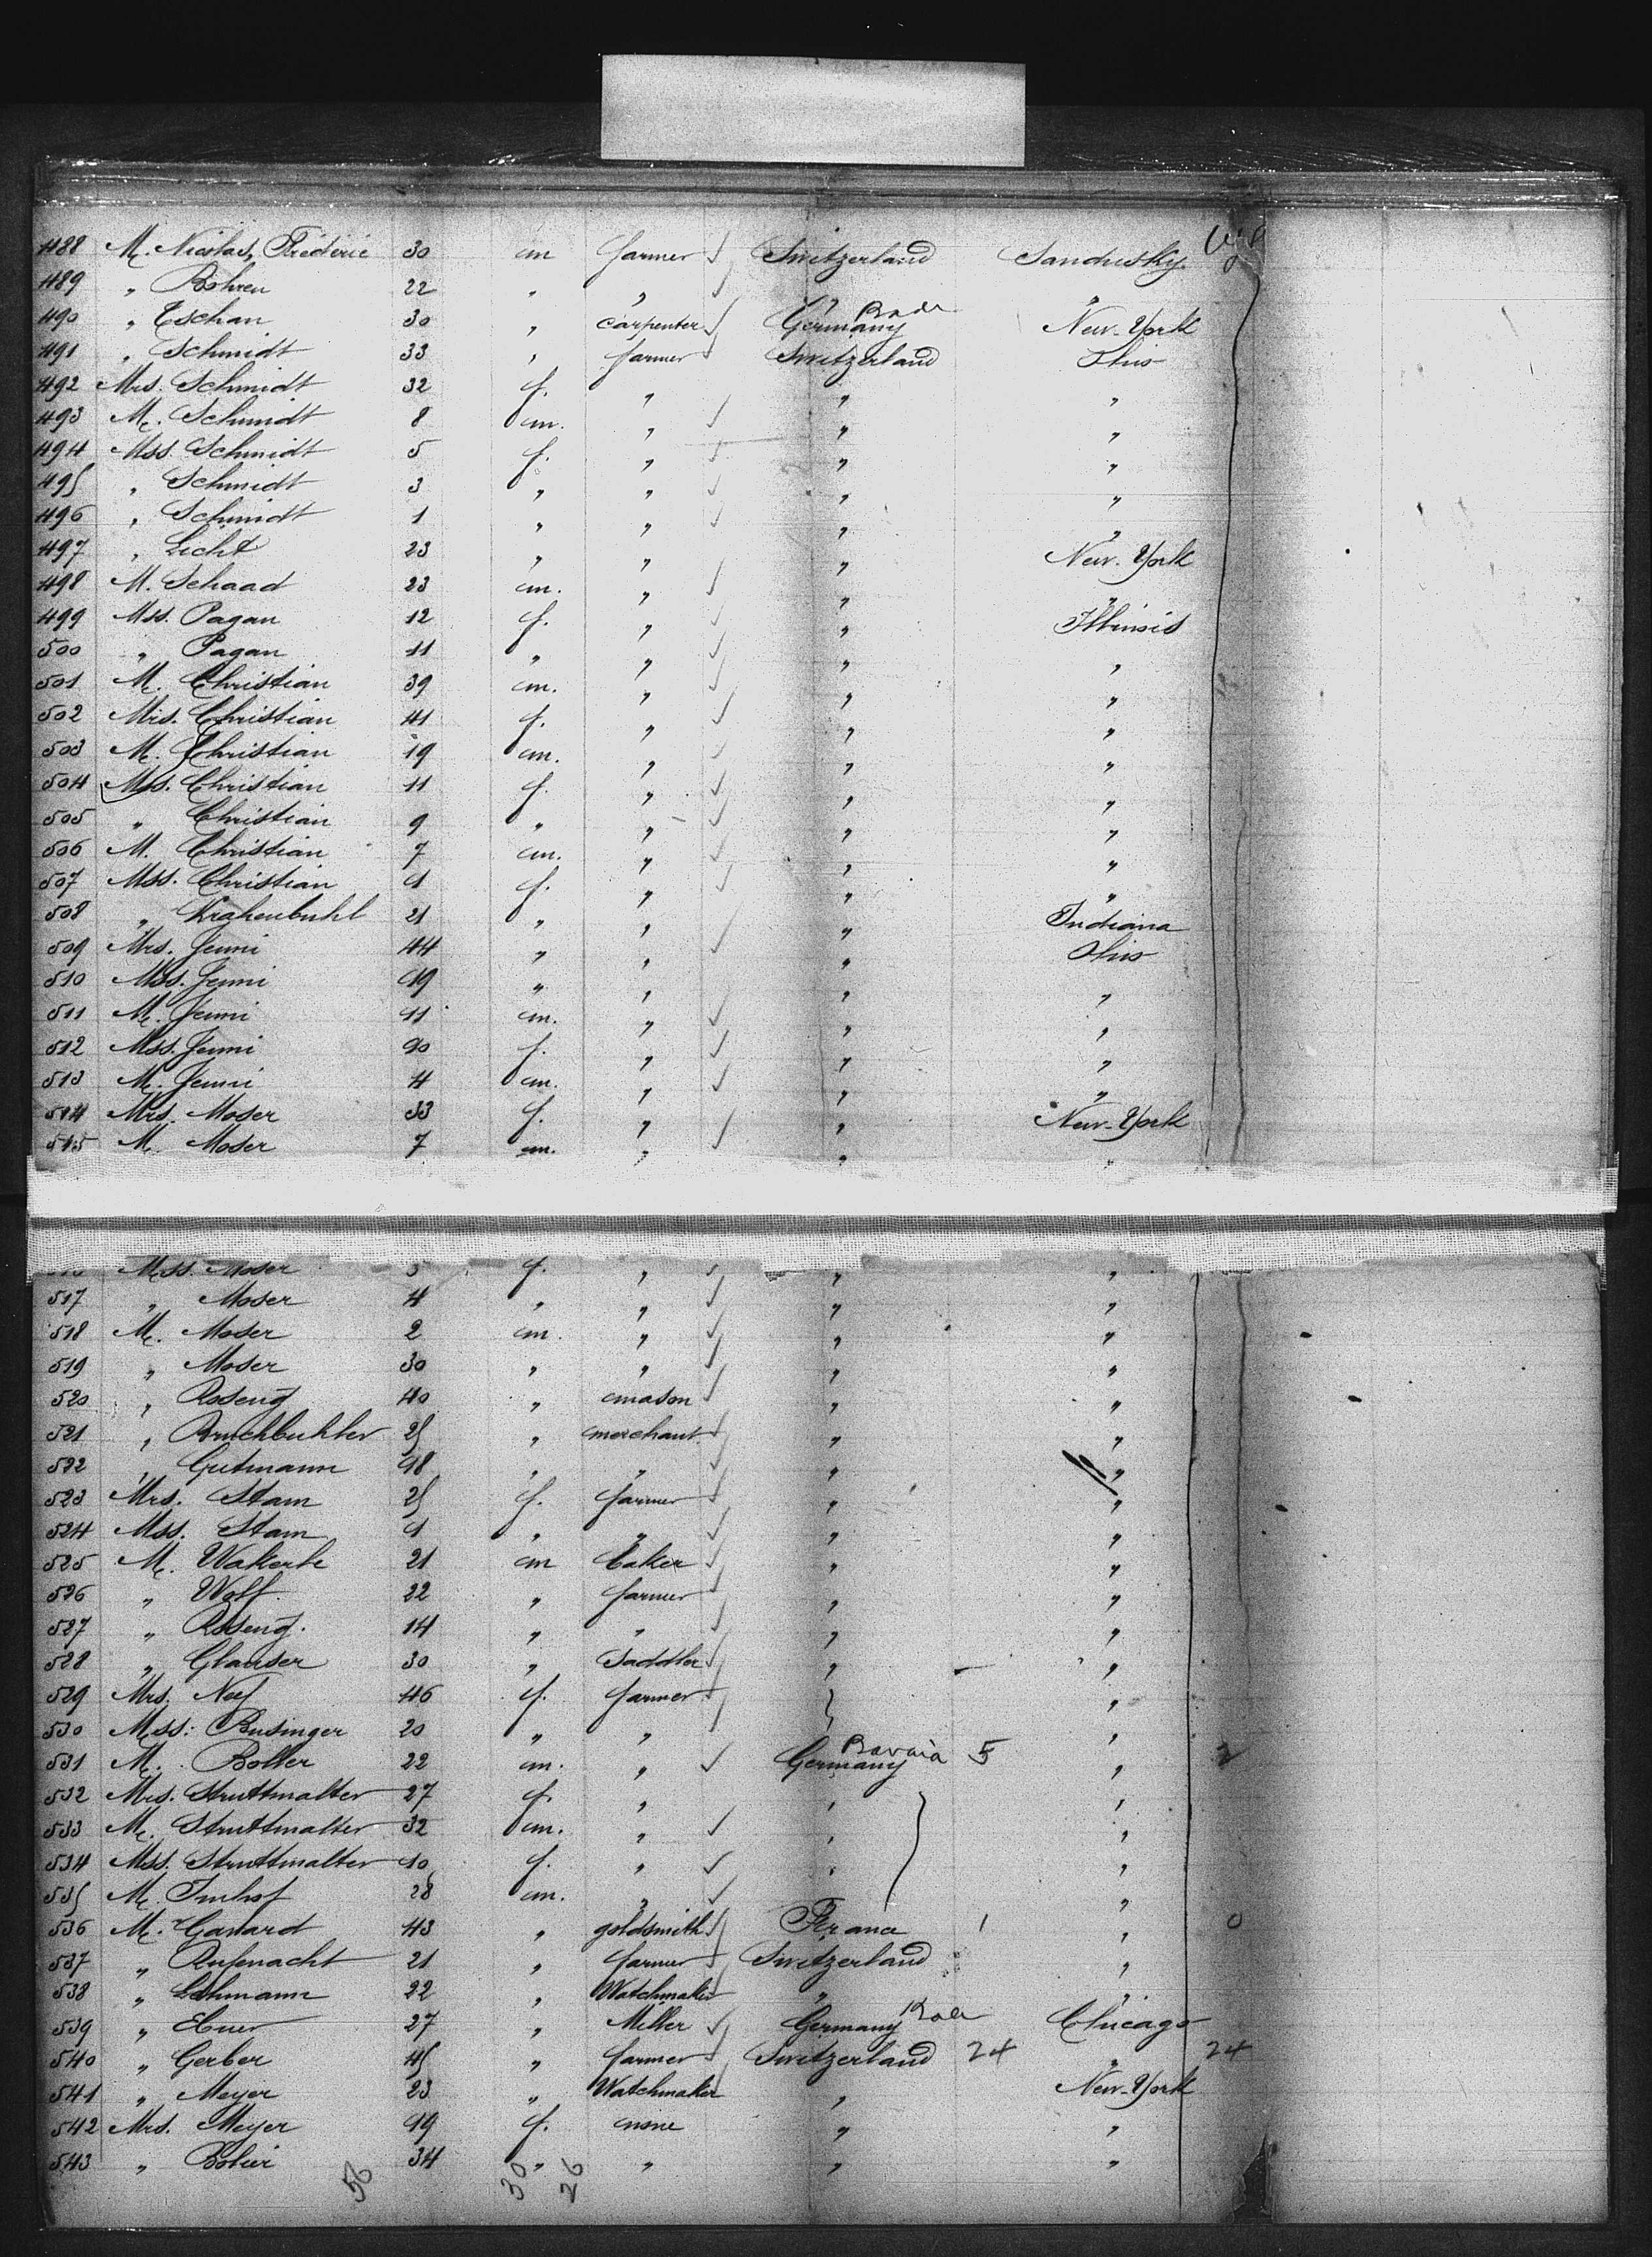 488 Mr. Nicolas, Fréderic 30 m farmer Switzerland Sandusky
489 " Bohren 22 " " " "
490 " Eschan 30 " carpenter Germany Bade New-York
491 " Schmidt 33 " farmer Switzerland Ohio
492 Mrs. Schmidt 32 f. " " "
493 Mr. Schmidt 8 m. " " "
494 Mss. Schmidt 5 f. " " "
495 " Schmidt 3 " " " "
496 " Schmidt 1 " " " "
497 " Licht 23 " " " New-York
498 M. Schaad 23 m. " " "
499 Mss. Pagan 12 f. " " Illinois
500 " Pagan 11 " " " "
501 Mr. Christian 39 m. " " "
502 Mrs. Christian 41 f. " " "
503 Mr. Christian 19 m. " " "
504 Mss. Christian 11 f. " " "
505 " Christian 9 " " " "
506 M. Christian 7 m. " " "
507 Mss. Christian 1 f. " " "
508 " Krahenbuhl 21 " " " Indiana
509 Mrs. Jenni 44 " " " Ohio
510 Mss. Jenni 19 " " " "
511 Mr. Jenni 11 m. " " "
512 Mss. Jenni 10 f. " " "
513 Mr. Jenni 4 m. " " "
514 Mrs. Moser 33 f. " " New-York
515 Mr. Moser 7 m. " " "
Mss. Moser f. " " "
517 " Moser 4 " " " "
518 Mr. Moser 2 m. " " "
519 " Moser 30 " " " "
520 " Roseng 40 " mason " "
521 " Bruchbuhler 25 " merchant " "
522 " Gutmann 18 " " " "
523 Mrs. Stam 25 f. farmer " "
524 Mss. Stam 1 " " " "
525 Mr. Wakerle 21 m baker " "
526 " Wolf. 22 " farmer " "
527 " Roseng. 14 " " " "
528 " Glauser 30 " Saddler " "
529 Mrs. Neef 46 f. farmer "
530 Mss. Businger 20 " " "
531 Mr. Boller 22 m. " Germany Bavaria 5 " 2
532 Mrs. Struttmatter 27 f. " " "
533 Mr. Struttmatter 32 m. " " "
534 Mss. Struttmatter 10 f. " " "
535 Mr. Imhof 28 m. " "
536 Mr. Gavard 43 " goldsmith France 1 " 0
537 " Rufenacht 21 " farmer Switzerland "
538 " Lehmann 22 " Watchmaker " "
539 " Ebner 27 " Miller Germany Bade Chicago
540 " Gerber 45 " farmer Switzerland 24 " 24
541 " Meyer 23 " Watchmaker " New-York
542 Mrs. Meyer 19 f. none " "
543 " Bohrer 34 " " " "
56 30 26